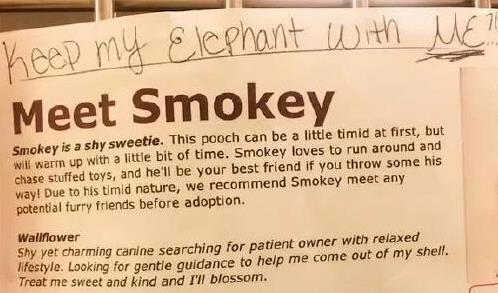 Keep my Elephant with ME
Meet Smokey
Smokey is a shy sweetie. This pooch can be a little timid at first, but
will warm up with a little bit of time. Smokey loves to run around and
chase stuffed toys, and he'll be your best friend if you throw some his
way! Due to his timid nature, we recommend Smokey meet any
potential furry friends before adoption.
Wallflower
Shy yet charming canine searching for patient owner with relaxed
lifestyle. Looking for gentle guidance to help me come out of my shell.
Treat me sweet and kind and I'll blossom.